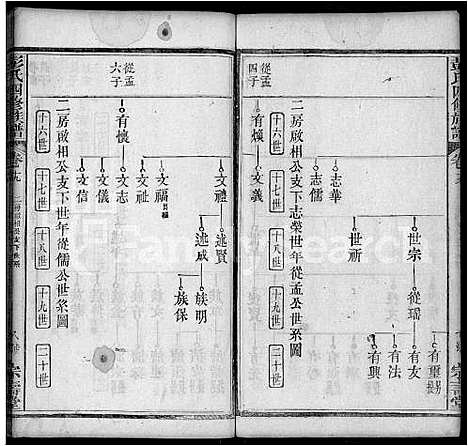 彭氏四修族譜
卷十九
宗壽堂
從孟四子
有煥
志華
志儒
文義
世宗
世祈
從瑶
有璽
有友
有法
有興
二房啟相公支下志榮世年從孟公世系圖
十六世
十七世
十八世
十九世
二十世
從孟六子
有懷
文禮
文福
文祉
文志
文儀
文信
述賢
述成
族明
族保
二房啟相公支下世年從儒公世系圖
十六世
十七世
十八世
十九世
二十世
彭氏四修族譜
卷十九
二房啟相公支下世系
宗壽堂